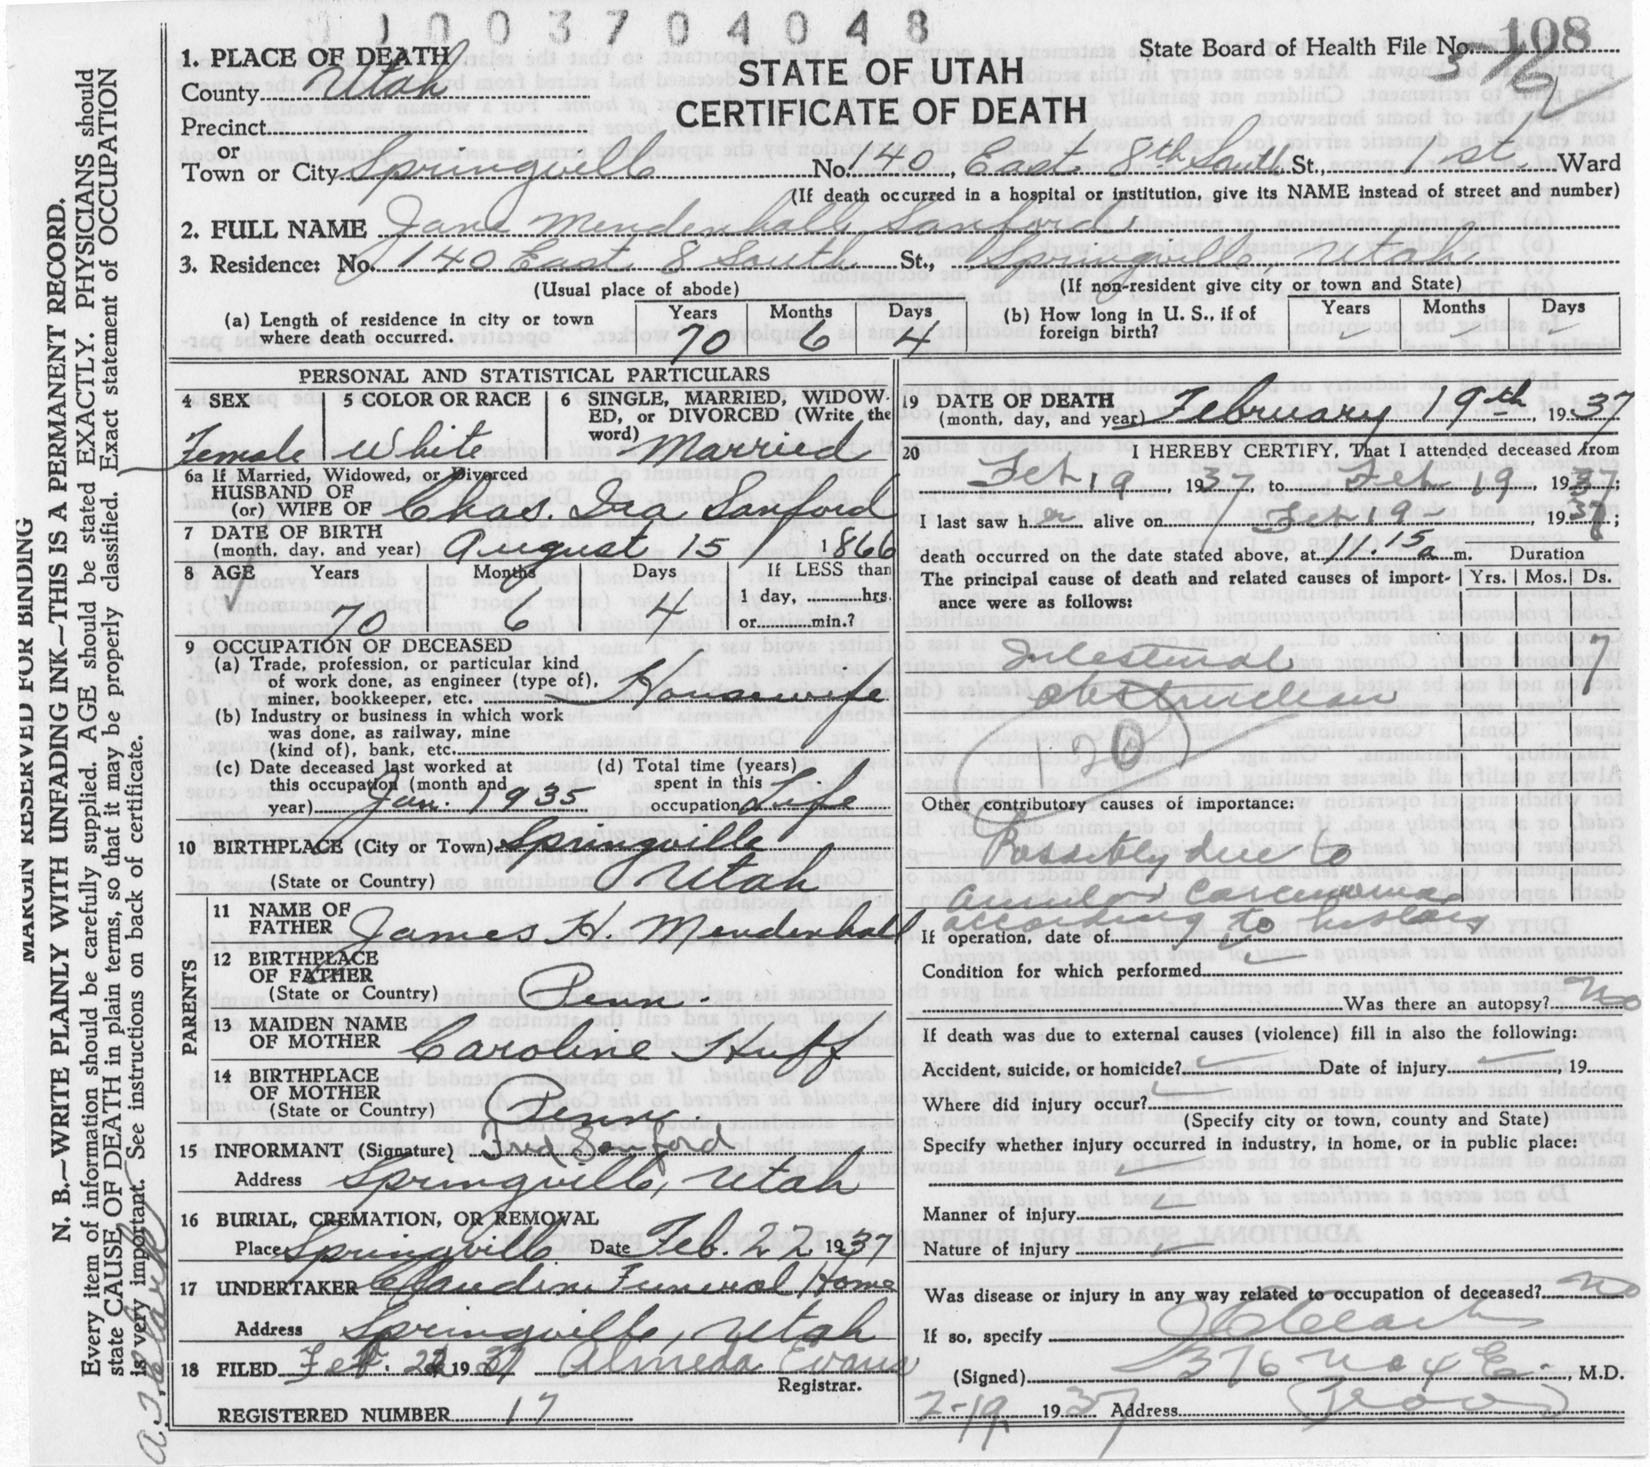 0 1 0 0 3 7 0 4 0 4 8
State Board of Health File No. 108
1. PLACE OF DEATH
County Utah
STATE OF UTAH
CERTIFICATE OF DEATH
Precinct
or
Town or City Springville No. 140, East 8th South St., 1st Ward
(If death occurred in a hospital or institution, give its NAME instead of street and number)
2. FULL NAME Jane Mendenhall Sanford
3. Residence: No. 140 East 8 South St., Springville, Utah.
(Usual place of abode) (If non-resident give city or town and State)
(a) Length of residence in city or town where death occurred. Years 70 Months 6 Days 4
(b) How long in U. S., if of foreign birth? Years Months Days
PERSONAL AND STATISTICAL PARTICULARS
4 SEX Female
5 COLOR OR RACE White
6 SINGLE, MARRIED, WIDOWED, or DIVORCED (Write the word) Married
6a If Married, Widowed, or Divorced
HUSBAND OF
(or) WIFE OF Chas. Ira Sanford
7 DATE OF BIRTH
(month, day, and year) August 15 1866
8 AGE Years 70 Months 6 Days 4 If LESS than
1 day, hrs.
or min.?
9 OCCUPATION OF DECEASED
(a) Trade, profession, or particular kind
of work done, as engineer (type of),
miner, bookkeeper, etc. Housewife
(b) Industry or business in which work
was done, as railway, mine
(kind of), bank, etc.
(c) Date deceased last worked at
this occupation (month and
year) Jan. 1935
(d) Total time (years)
spent in this
occupation Life
10 BIRTHPLACE (City or Town) Springville
(State or Country) Utah
PARENTS
11 NAME OF
FATHER James H. Mendenhall
12 BIRTHPLACE
OF FATHER
(State or Country) Penn.
13 MAIDEN NAME
OF MOTHER Caroline Huff
14 BIRTHPLACE
OF MOTHER
(State or Country) Penn.
15 INFORMANT (Signature) Fred Sanford
Address Springville, Utah
16 BURIAL, CREMATION, OR REMOVAL
Place Springville Date Feb. 22 1937
17 UNDERTAKER Claudin Funeral Home
Address Springville, Utah
18 FILED Feb. 22 1937 Almeda Evans
Registrar.
REGISTERED NUMBER 17
19 DATE OF DEATH
(month, day, and year) February 19th, 1937
20 I HEREBY CERTIFY, That I attended deceased from
Feb 19, 1937, to Feb 19, 1937;
I last saw her alive on Feb 19, 1937;
death occurred on the date stated above, at 11.15a m. Duration
The principal cause of death and related causes of importance were as follows: Yrs. Mos. Ds.
Intestinal 7
obstruction
120
Other contributory causes of importance:
Possibly due to
annular carcinoma
according to history
If operation, date of
Condition for which performed
Was there an autopsy? No
If death was due to external causes (violence) fill in also the following:
Accident, suicide, or homicide? Date of injury 19
Where did injury occur?
(Specify city or town, county and State)
Specify whether injury occurred in industry, in home, or in public place:
Manner of injury
Nature of injury
Was disease or injury in any way related to occupation of deceased? No
If so, specify
(Signed) , M.D.
2-19, 1937 Address Provo
MARGIN RESERVED FOR BINDING
N. B.—WRITE PLAINLY WITH UNFADING INK—THIS IS A PERMANENT RECORD.
Every item of information should be carefully supplied. AGE should be stated EXACTLY. PHYSICIANS should
state CAUSE OF DEATH in plain terms, so that it may be properly classified. Exact statement of OCCUPATION
is very important. See instructions on back of certificate.